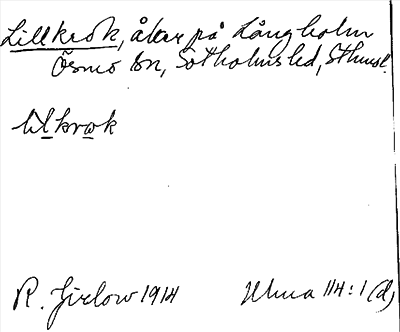 Lillkrok, åker på Långholm
Ösmo sn, Sotholms hd, Sthmsl.
lilkrok
R. Jirlow 1914 Ulma 114:1 (d)